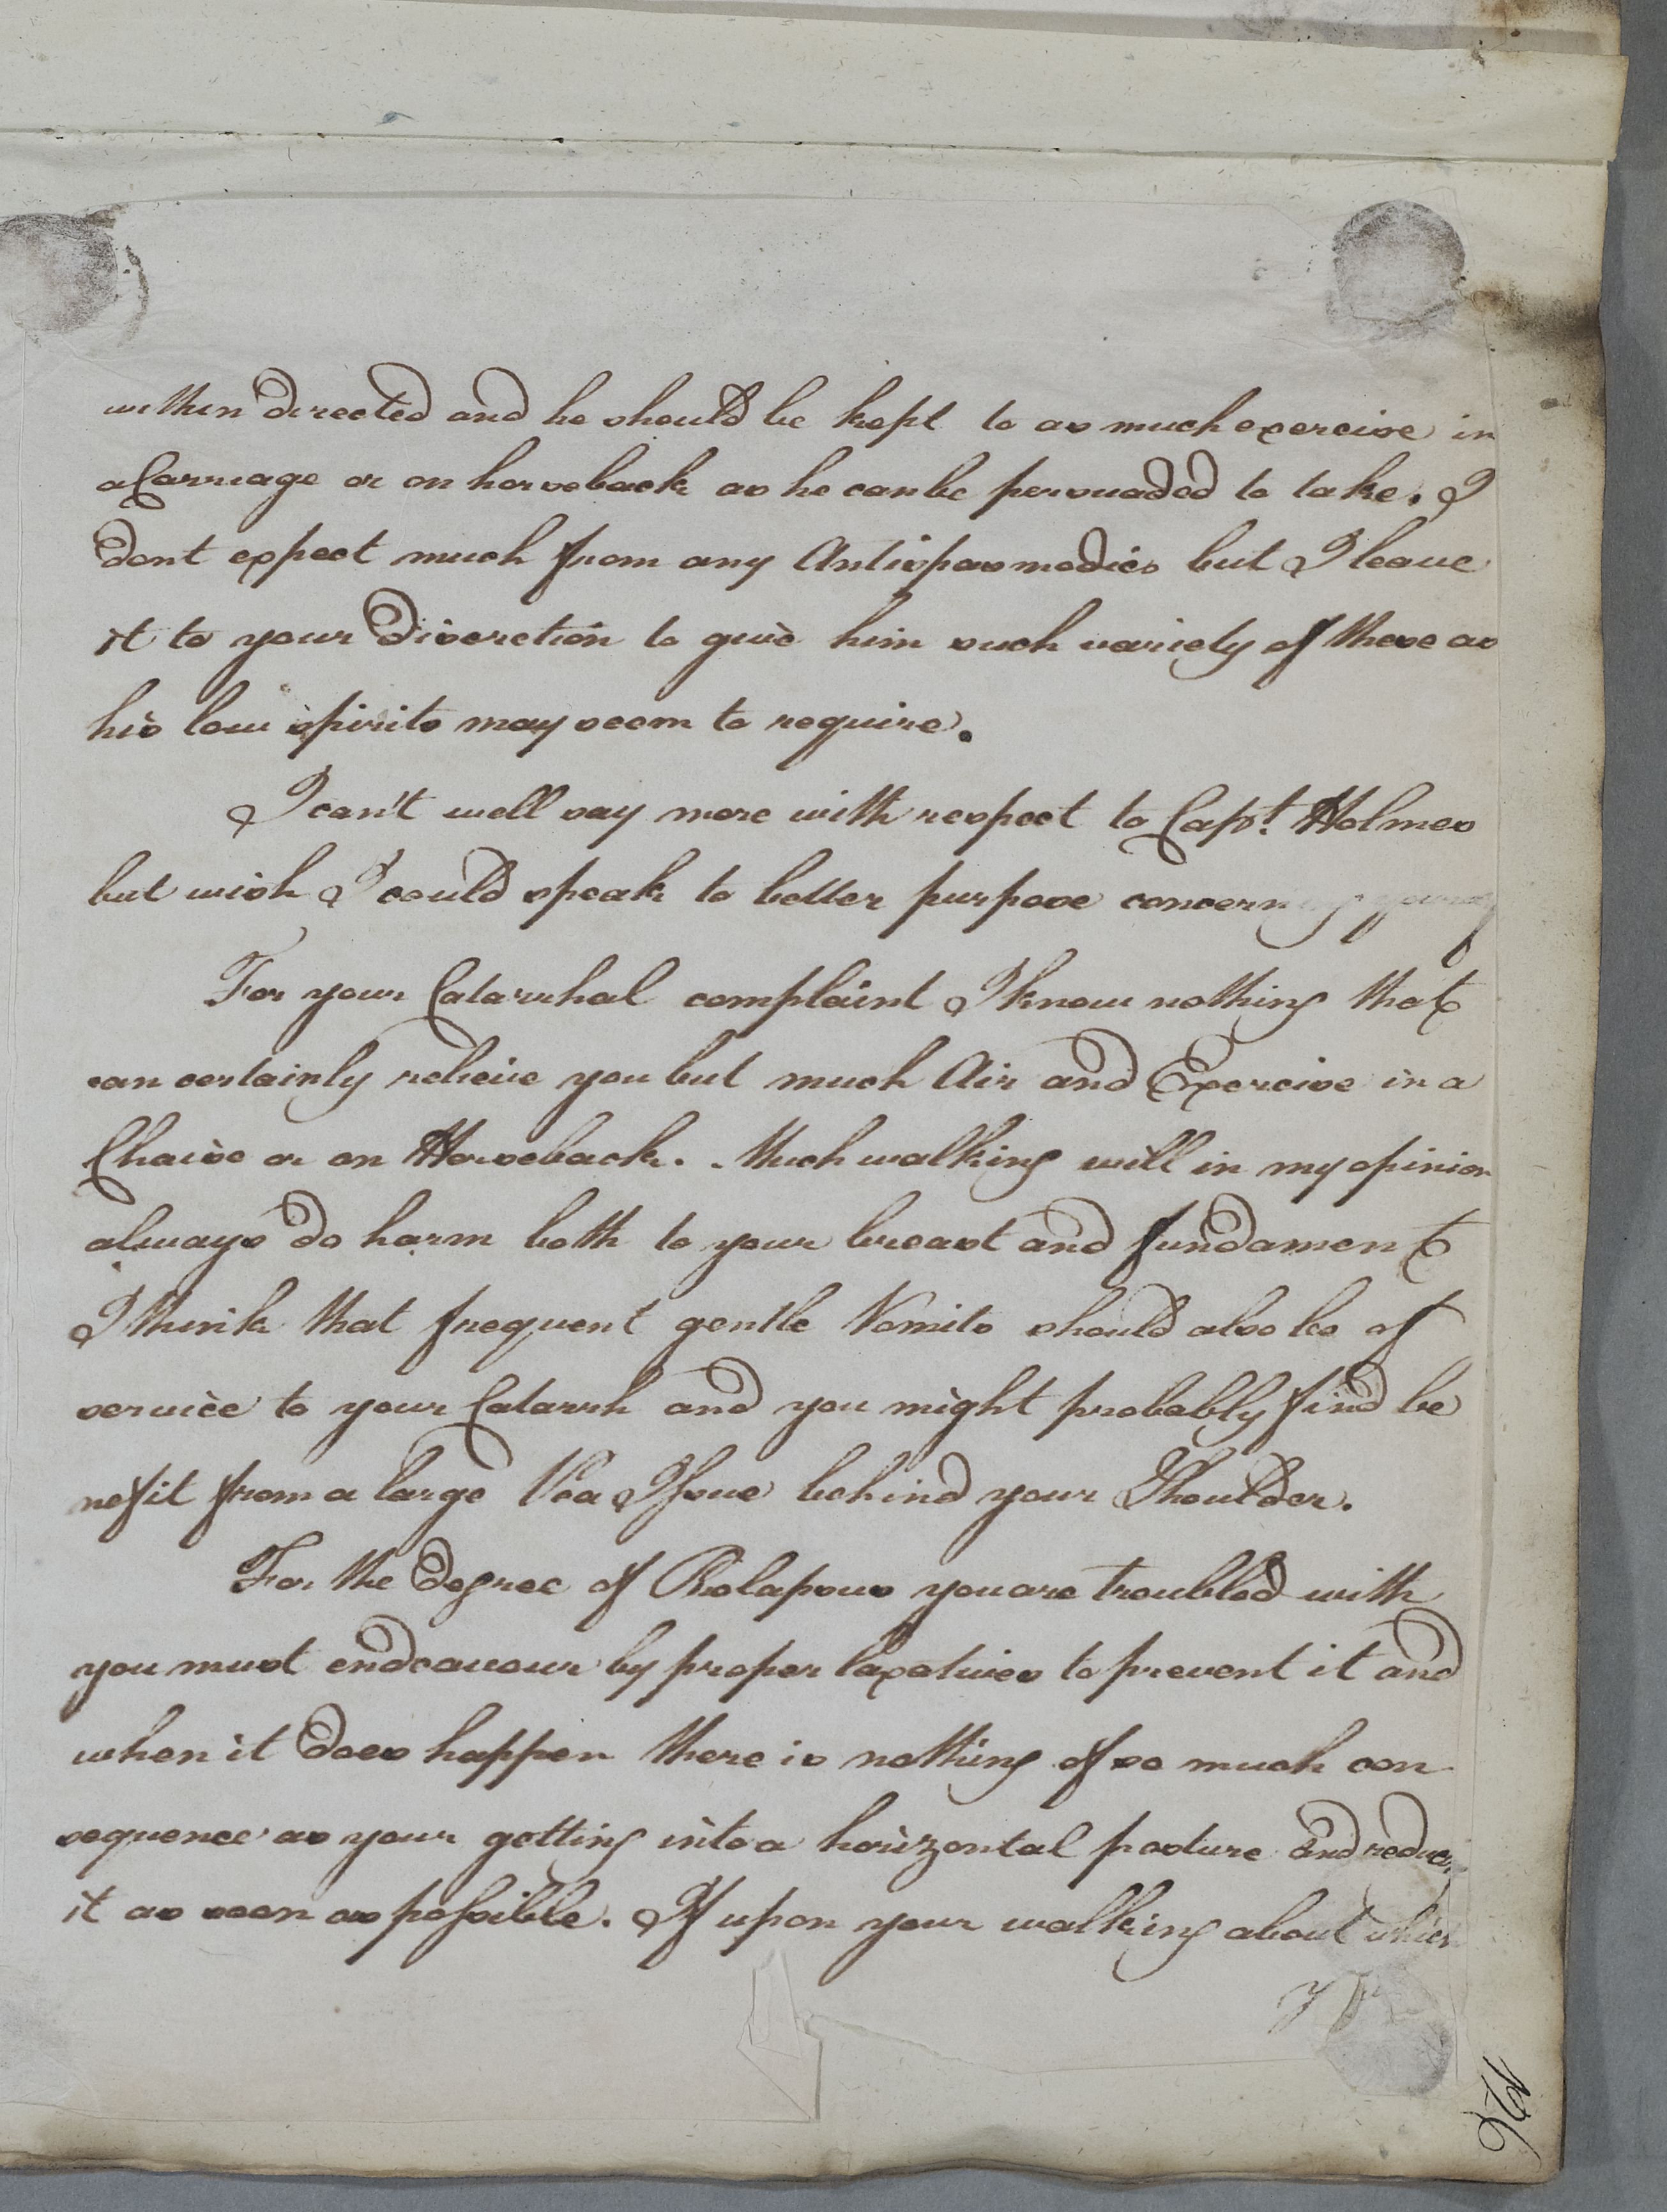 within directed and he should be kept to as much exercise in
a Carriage or on horseback as he can be persuaded to take. I
dont expect much from any Antispasmodics but I leave
it to your Discretion to give him such variety of these as
his low spirits may seem to require.
I can't well say more with respect to Capt. Holmes
but wish I could speak to better purpose concerning
For your Catarrhal complaint I know nothing that
can certainly relieve you but much Air and Exercise in a
Chaise or on Horseback. Much walking will in my opinion
always do harm both to your breast and fundament
I think that frequent gentle Vomits should also be of
service to your Catarrh and you might probably find be
nefit from a large Pea Issue behind your Shoulder.
For the Degree of Prolapsus you are troubled with
you must endeavour by proper laxatives to prevent it and
when it does happen there is nothing of so much con
sequence as your getting into a horizontal posture and
it as soon as possible. If upon your walking about